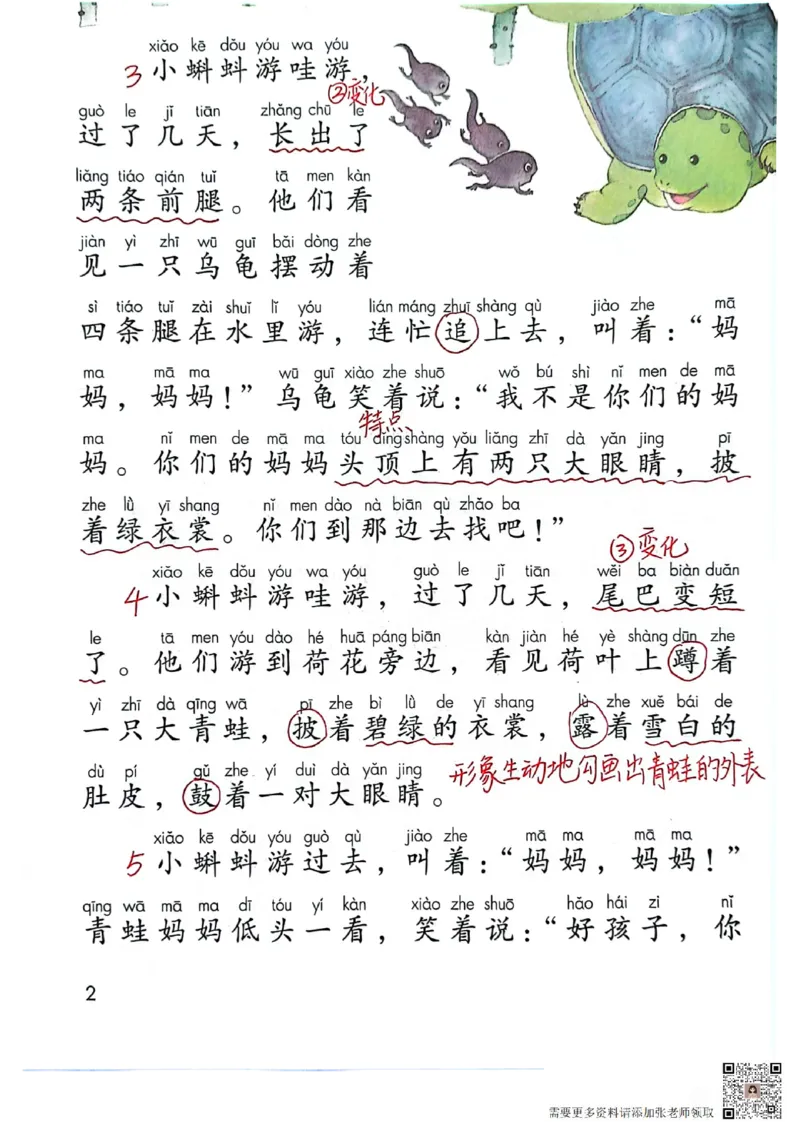 xiǎo kē dǒu yóu wa yóu
3 小蝌蚪游哇游，
②变化
guò le jǐ tiān zhǎng chū le
过了几天，长出了
liǎng tiáo qián tuǐ tā men kàn
两条前腿。他们看
jiàn yì zhī wū guī bǎi dòng zhe
见一只乌龟摆动着
sì tiáo tuǐ zài shuǐ lǐ yóu lián máng zhuī shàng qù jiào zhe mā
四条腿在水里游，连忙追上去，叫着：“妈
ma mā ma wū guī xiào zhe shuō wǒ bú shì nǐ men de mā
妈，妈妈！”乌龟笑着说：“我不是你们的妈
特点
ma nǐ men de mā ma tóu dǐng shàng yǒu liǎng zhī dà yǎn jing pī
妈。你们的妈妈头顶上有两只大眼睛，披
zhe lǜ yī shang nǐ men dào nà biān qù zhǎo ba
着绿衣裳。你们到那边去找吧！”
③变化
xiǎo kē dǒu yóu wa yóu guò le jǐ tiān wěi ba biàn duǎn
4 小蝌蚪游哇游，过了几天，尾巴变短
le tā men yóu dào hé huā páng biān kàn jiàn hé yè shàng dūn zhe
了。他们游到荷花旁边，看见荷叶上蹲着
yì zhī dà qīng wā pī zhe bì lǜ de yī shang lù zhe xuě bái de
一只大青蛙，披着碧绿的衣裳，露着雪白的
dù pí gǔ zhe yí duì dà yǎn jing
肚皮，鼓着一对大眼睛。
形象生动地勾画出青蛙的外表
xiǎo kē dǒu yóu guò qù jiào zhe mā ma mā ma
5 小蝌蚪游过去，叫着：“妈妈，妈妈！”
qīng wā mā ma dī tóu yí kàn xiào zhe shuō hǎo hái zi nǐ
青蛙妈妈低头一看，笑着说：“好孩子，你
2
需要更多资料请添加张老师领取